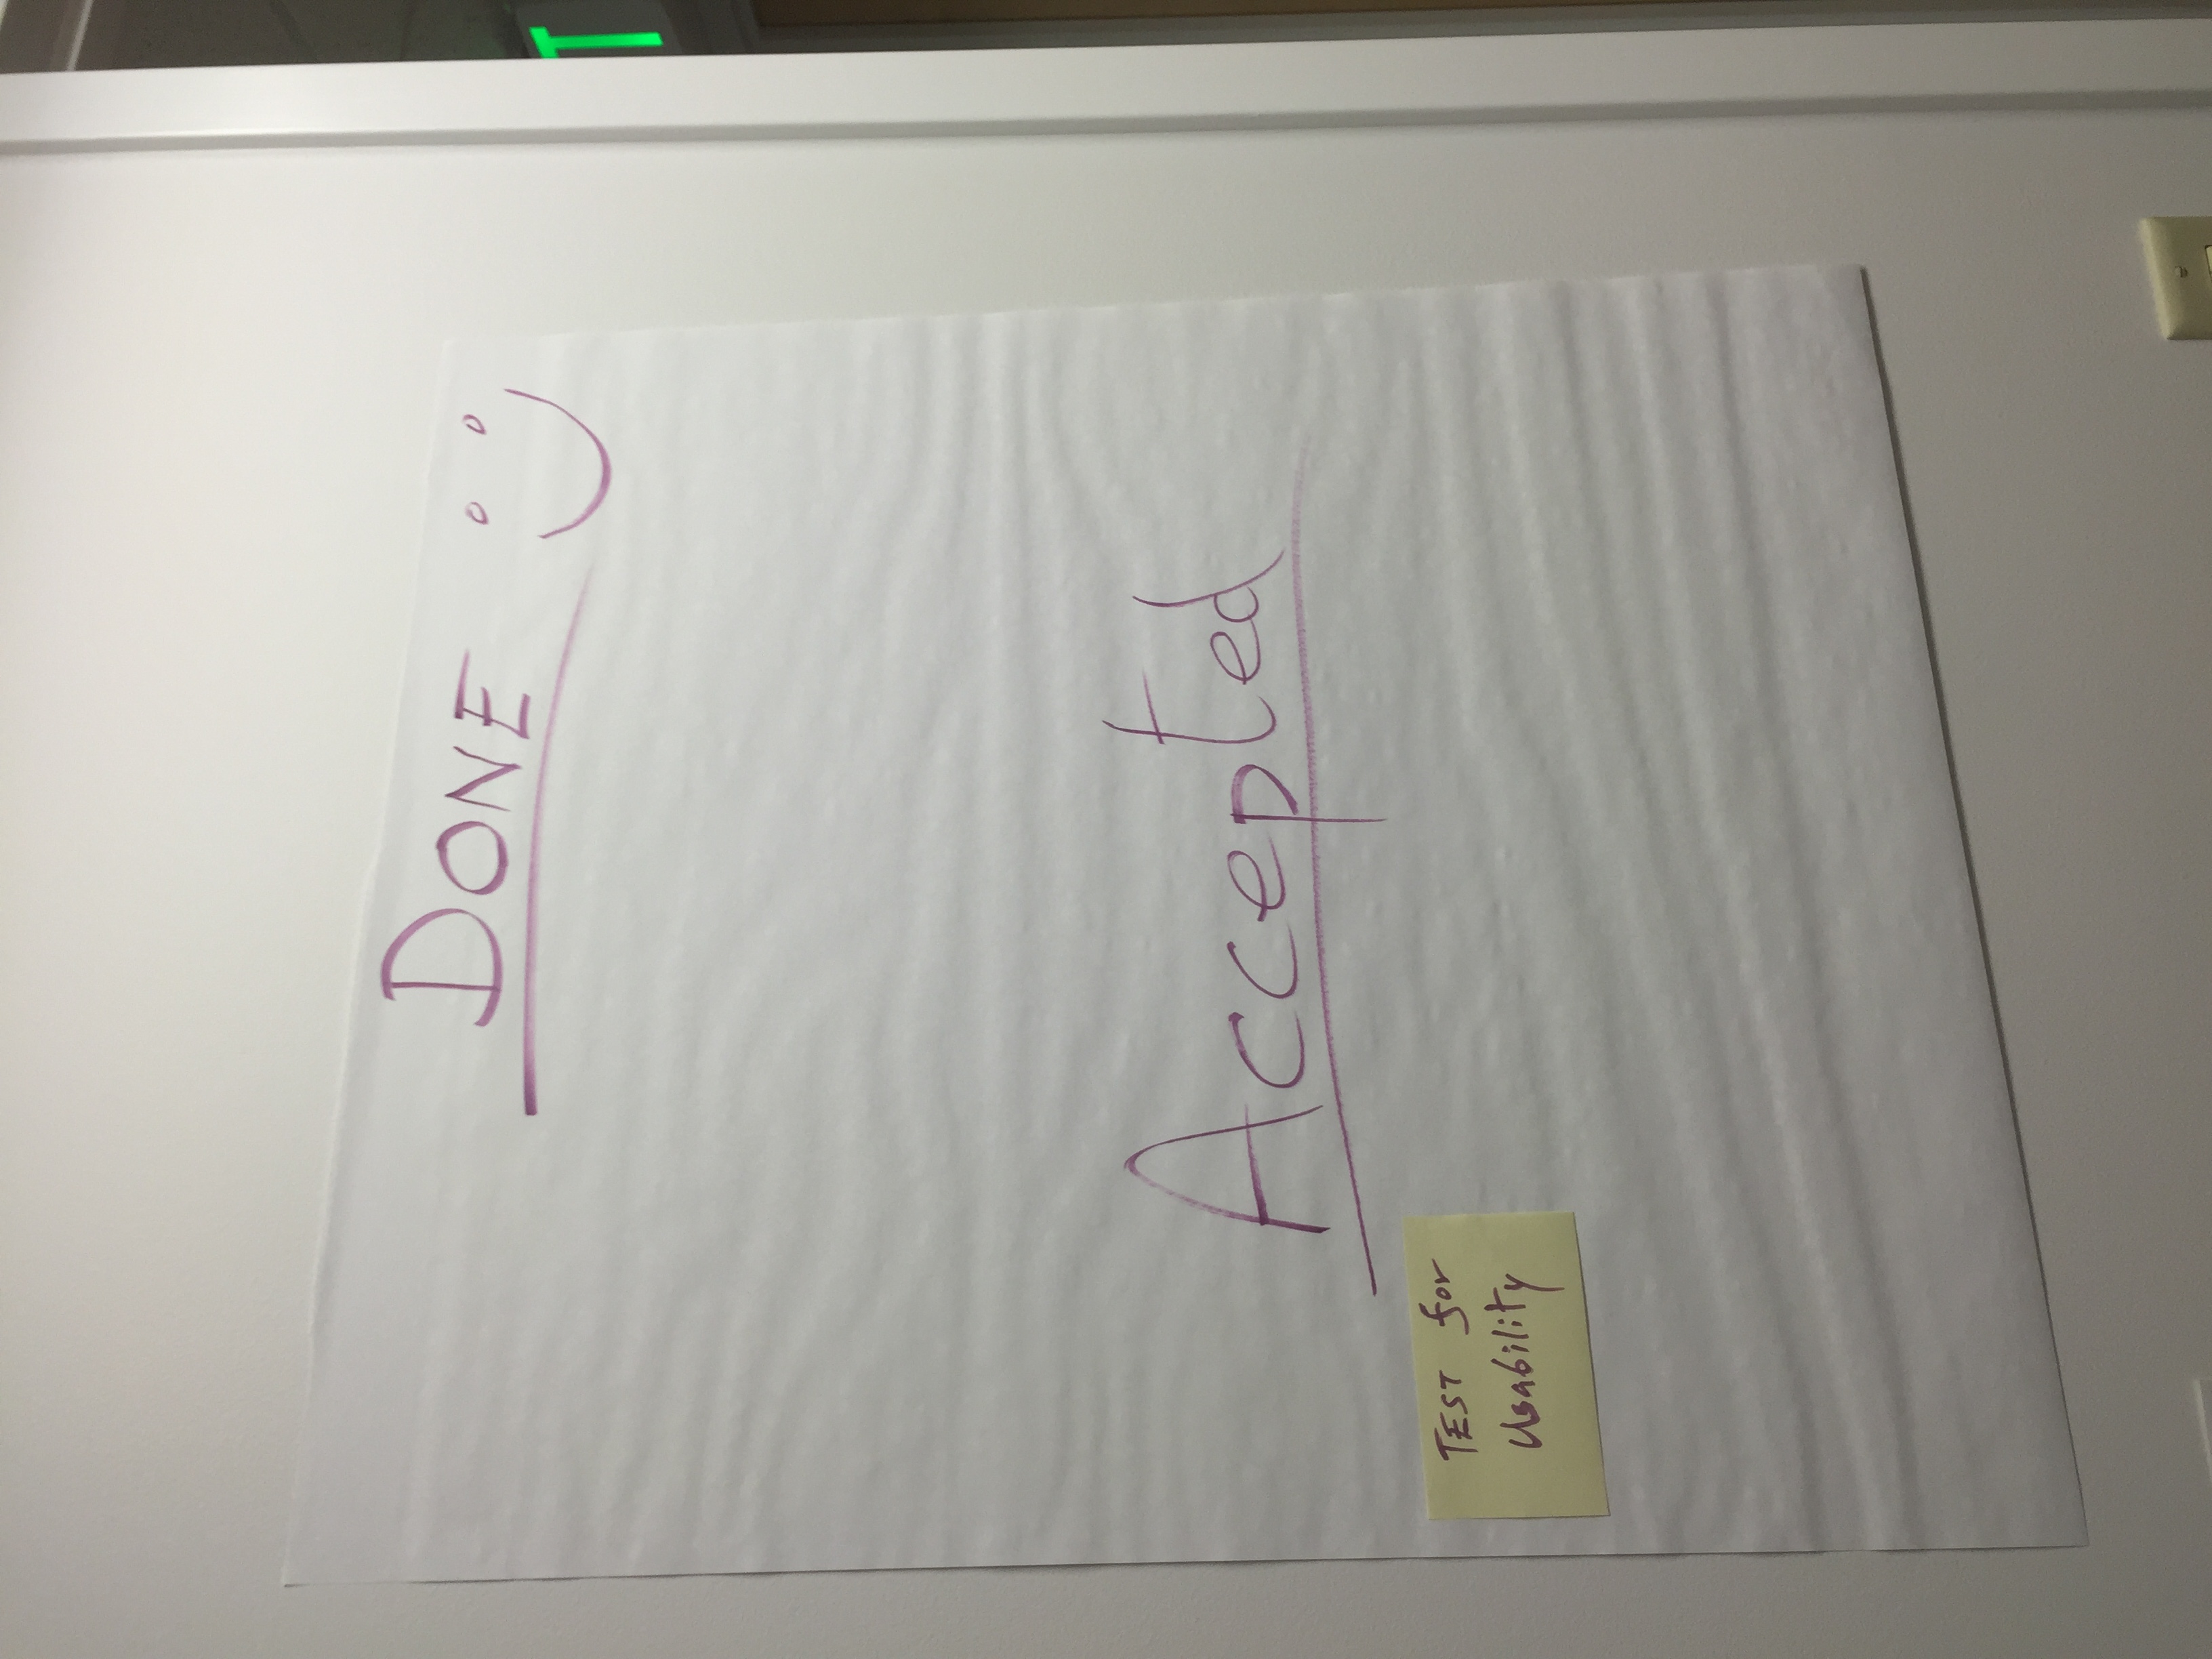 DONE
Accepted
TEST for
Usability
T